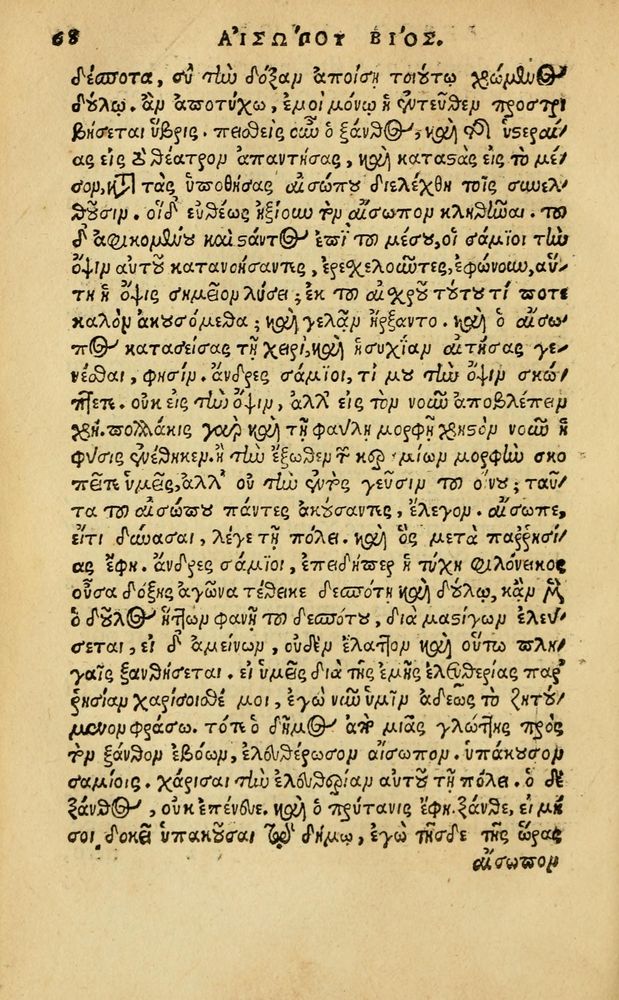 68 ΑΙΣΩΠΟΥ ΒΙΟΣ.
δέσποτα, σὺ τὴν δόξαν ἀποίσῃ τοιούτῳ χρώμενος
δούλῳ. ἂν ἀποτύχω, ἐμοὶ μόνῳ ἡ ἐντεῦθεν προστρι
βήσεται ὕβρις. πεισθεὶς οὖν ὁ ξάνθος, καὶ τῇ ὑστεραί
ας εἰς τὸ θέατρον ἀπαντήσας, καὶ καταστὰς εἰς τὸ μέ
σον, κατὰ τὰς ὑποθήκας αἰσώπου διελέχθη τοῖς συνελ
θοῦσιν. οἱ δ' εὐθέως ἠξίουν τὸν αἴσωπον κληθῆναι. τοῦ
δ' ἀφικομένου καὶ στάντος ἐπὶ τοῦ μέσου, οἱ σάμιοι τὴν
ὄψιν αὐτοῦ κατανοήσαντες, ἐρεσχελοῦντες, ἐφώνουν, αὕ
τη ἡ ὄψις σημεῖον λύσει; ἐκ τοῦ αἰσχροῦ τούτου τί ποτε
καλὸν ἀκουσόμεθα; καὶ γελᾶν ἤρξαντο. καὶ ὁ αἴσω
πος κατασείσας τῇ χειρί, καὶ ἡσυχίαν αἰτήσας γε
νέσθαι, φησίν. ἄνδρες σάμιοι, τί μου τὴν ὄψιν σκώ
πτετε. οὐκ εἰς τὴν ὄψιν, ἀλλ' εἰς τὸν νοῦν ἀποβλέπειν
χρή. πολλάκις γὰρ καὶ τῇ φαύλῃ μορφῇ χρηστὸν νοῦν ἡ
φύσις ἐνέθηκεν. ἢ τὴν ἔξωθεν τῶν κεραμίων μορφὴν σκο
πεῖτε ὑμεῖς, ἀλλ' οὐ τὴν ἐντὸς γεῦσιν τοῦ οἴνου; ταῦ/
τα τοῦ αἰσώπου πάντες ἀκούσαντες, ἔλεγον. αἴσωπε,
εἴ τι δύνασαι, λέγε τῇ πόλει. καὶ ὃς μετὰ παῤῥησί/
ας ἔφη. ἄνδρες σάμιοι, ἐπειδήπερ ἡ τύχη φιλόνεικος
οὖσα δόξης ἀγῶνα τέθεικε δεσπότῃ καὶ δούλῳ, κἂν μὲν
ὁ δοῦλος ἥττων φανῇ τοῦ δεσπότου, διὰ μαστίγων ἐλεύ/
σεται, εἰ δ' ἀμείνων, οὐδὲν ἔλαττον καὶ οὕτω πλη/
γαῖς ξανθήσεται. εἰ ὑμεῖς διὰ τῆς ἐμῆς ἐλευθερίας παῤ
ῥησίαν χαρίσοισθέ μοι, ἐγὼ νῦν ὑμῖν ἀδεῶς τὸ ζητού/
μενον φράσω. τότε ὁ δῆμος ἀπὸ μιᾶς γλώττης πρὸς
τὸν ξάνθον ἐβόων, ἐλευθέρωσον αἴσωπον. ὑπάκουσον
σαμίοις. χάρισαι τὴν ἐλευθερίαν αὐτοῦ τῇ πόλει. ὁ δὲ
ξάνθος, οὐκ ἐπένευε. καὶ ὁ πρύτανις ἔφη. ξάνθε, εἰ μή
σοι δοκεῖ ὑπακοῦσαι τῷ δήμῳ, ἐγὼ τῆσδε τῆς ὥρας
αἴσωπον